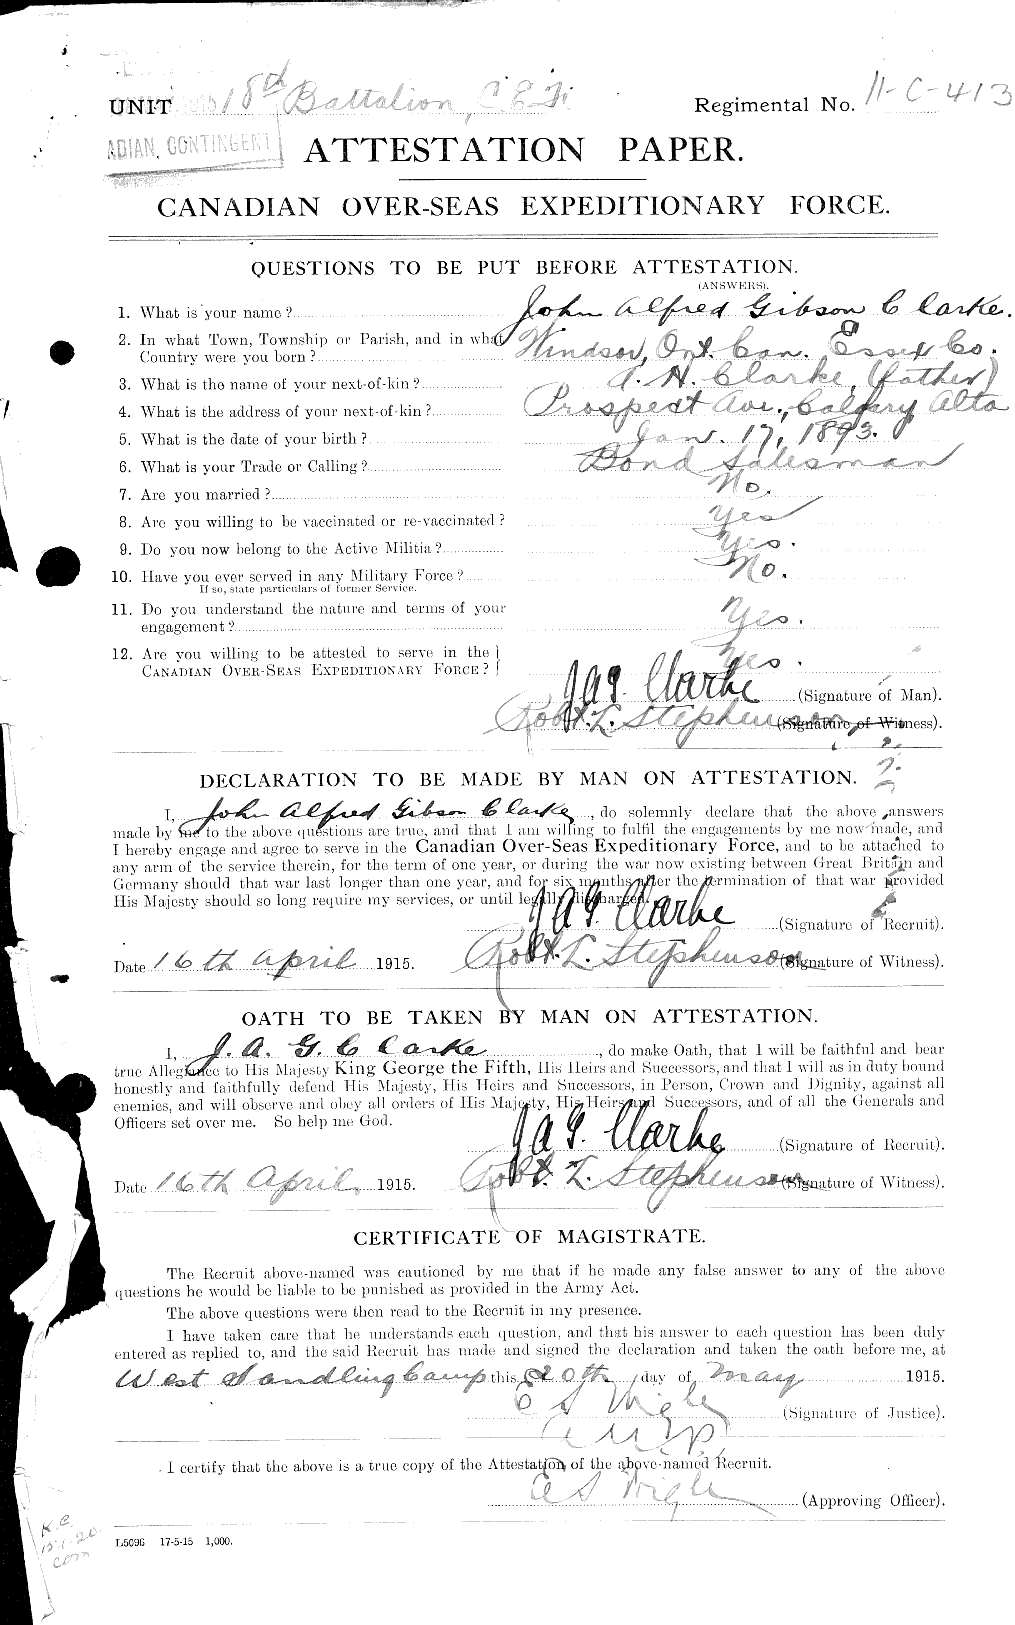 UNIT 18th Battalion, C.E.F. Regimental No. 11-C-413
ADIAN. CONTINGENT
ATTESTATION PAPER.
CANADIAN OVER-SEAS EXPEDITIONARY FORCE.
QUESTIONS TO BE PUT BEFORE ATTESTATION.
(ANSWERS).
1. What is your name? John Alfred Gibson Clarke.
2. In what Town, Township or Parish, and in what
Country were you born? Windsor, Ont. Can. Essex Co.
3. What is the name of your next-of-kin? A. H. Clarke, (father)
4. What is the address of your next-of-kin? Prospect Ave., Calgary Alta
5. What is the date of your birth? Jan. 17, 1893.
6. What is your Trade or Calling? Bond Salesman
7. Are you married? No.
8. Are you willing to be vaccinated or re-vaccinated? Yes
9. Do you now belong to the Active Militia? Yes.
10. Have you ever served in any Military Force? No.
If so, state particulars of former Service.
11. Do you understand the nature and terms of your
engagement? Yes.
12. Are you willing to be attested to serve in the
CANADIAN OVER-SEAS EXPEDITIONARY FORCE? Yes.
JAG. Clarke (Signature of Man).
Robt. L. Stephenson (Signature of Witness).
DECLARATION TO BE MADE BY MAN ON ATTESTATION.
I, John Alfred Gibson Clarke, do solemnly declare that the above answers
made by me to the above questions are true, and that I am willing to fulfil the engagements by me now made, and
I hereby engage and agree to serve in the Canadian Over-Seas Expeditionary Force, and to be attached to
any arm of the service therein, for the term of one year, or during the war now existing between Great Britain and
Germany should that war last longer than one year, and for six months after the termination of that war provided
His Majesty should so long require my services, or until legally discharged.
JAG Clarke (Signature of Recruit).
Date 16th April 1915. Robt. L. Stephenson (Signature of Witness).
OATH TO BE TAKEN BY MAN ON ATTESTATION.
I, J. A. G. Clarke, do make Oath, that I will be faithful and bear
true Allegiance to His Majesty King George the Fifth, His Heirs and Successors, and that I will as in duty bound
honestly and faithfully defend His Majesty, His Heirs and Successors, in Person, Crown and Dignity, against all
enemies, and will observe and obey all orders of His Majesty, His Heirs and Successors, and of all the Generals and
Officers set over me. So help me God.
JAG. Clarke (Signature of Recruit).
Date 16th April, 1915. Robt. L. Stephenson (Signature of Witness).
CERTIFICATE OF MAGISTRATE.
The Recruit above-named was cautioned by me that if he made any false answer to any of the above
questions he would be liable to be punished as provided in the Army Act.
The above questions were then read to the Recruit in my presence.
I have taken care that he understands each question, and that his answer to each question has been duly
entered as replied to, and the said Recruit has made and signed the declaration and taken the oath before me, at
West Sandling Camp this 20th day of May 1915.
E S Wigle (Signature of Justice).
I certify that the above is a true copy of the Attestation of the above-named Recruit.
E S Wigle (Approving Officer).
L5096 17-5-15 1,000.